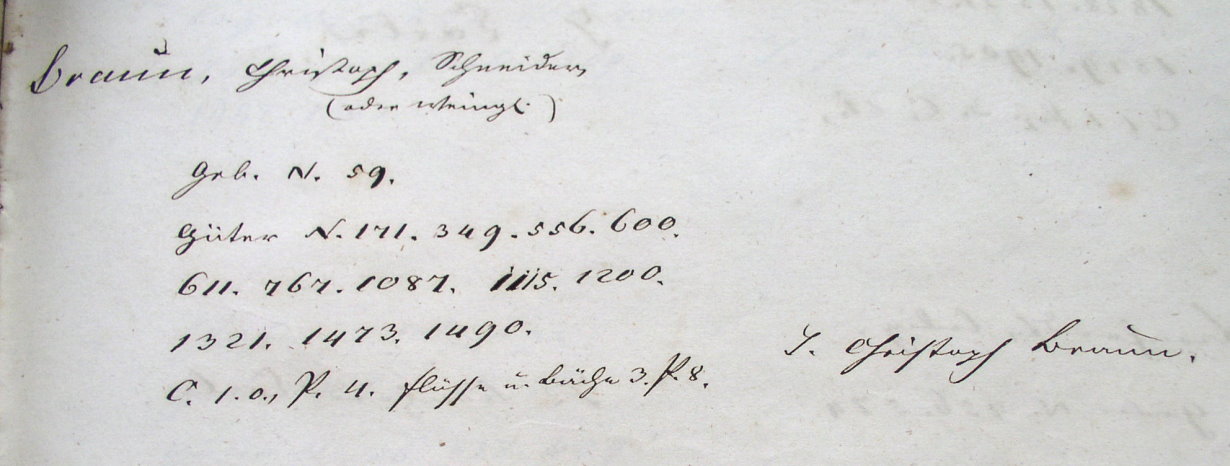 Braun, Christoph, Schneider,
(oder Weingl.)
Geb. N. 59.
Güter N. 171. 349. 556. 600.
611. 767. 1087. 1115. 1200.
1321. 1473. 1490.
C. 1. o., P. 4. Flüsse u. Bäche 3. P. 8.
J. Christoph Braun.